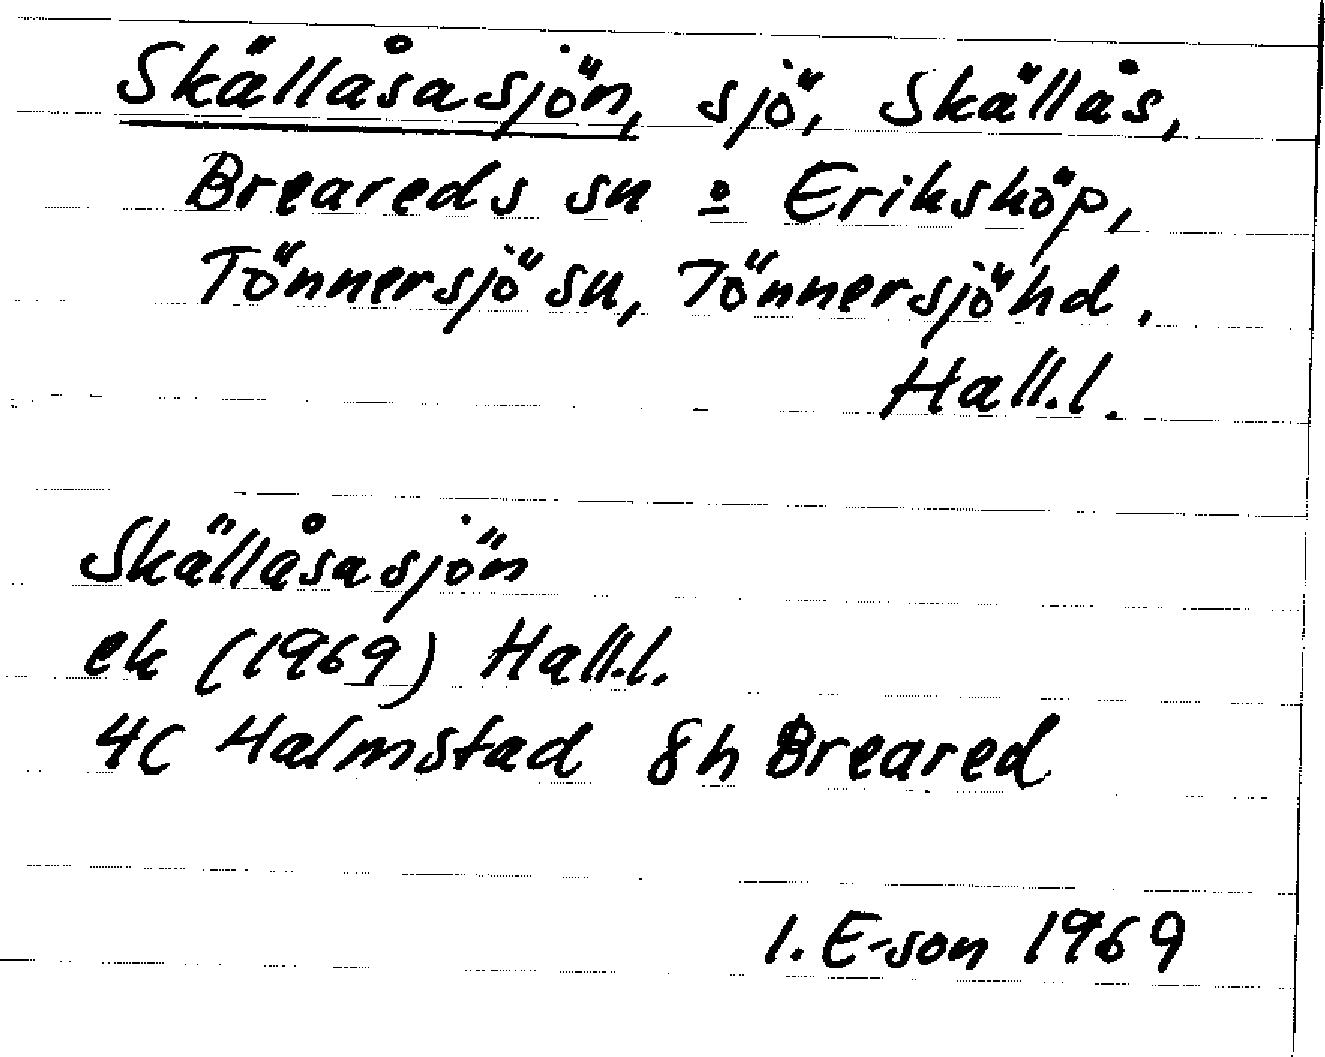 Skällåsasjön, sjö, Skällås,
Breareds sn o Eriksköp,
Tönnersjö sn, Tönnersjö hd.
Hall.l.
Skällåsasjön
ek (1969) Hall.l.
4C Halmstad 8h Breared
I. E-son 1969